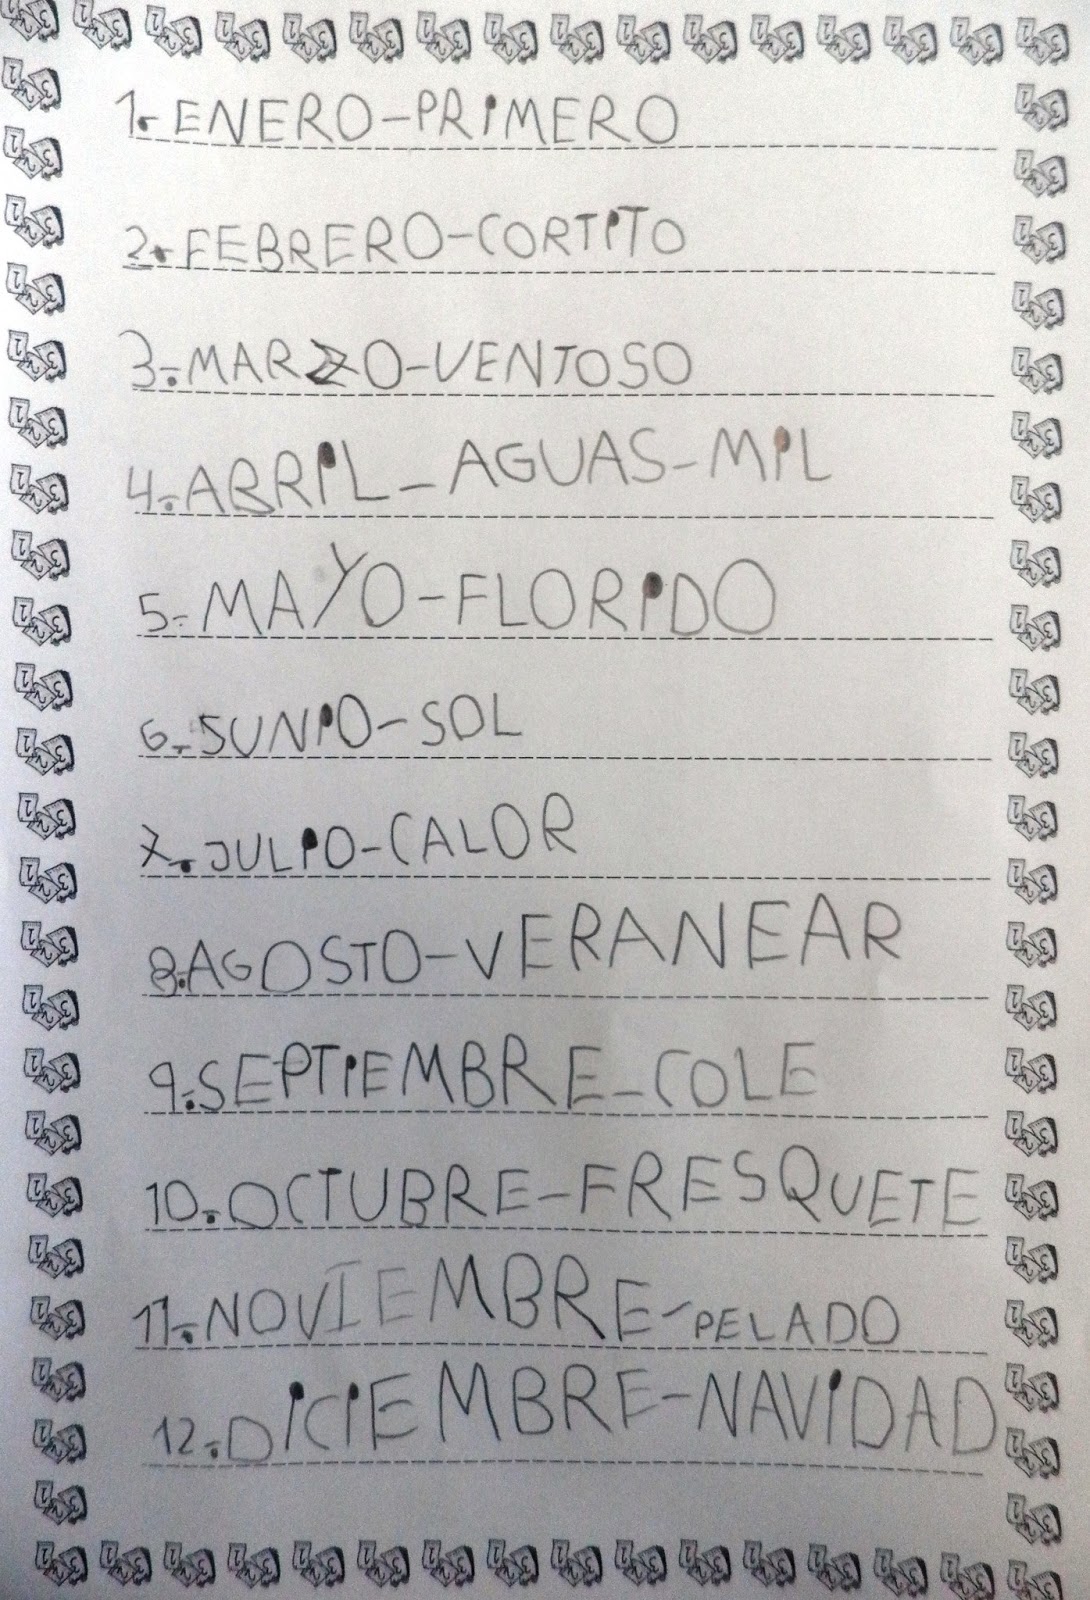 1.-ENERO-PRiMERO
2.-FEBRERO-CORTiTO
3.-MARZO-VENTOSO
4.-ABRiL-AGUAS-MiL
5.-MAYO-FLORiDO
6.-SUNiO-SOL
7.-JULiO-CALOR
8.-AGOSTO-VERANEAR
9.-SEPTiEMBRE-COLE
10.-OCTUBRE-FRESQUETE
11.-NOVIEMBRE-PELADO
12.-DiCiEMBRE-NAViDAD